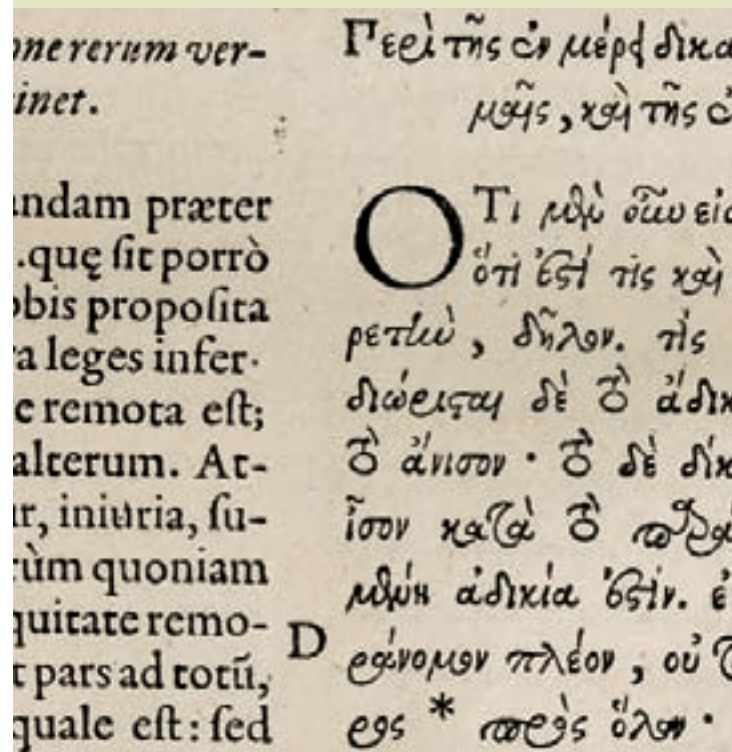 one rerum ver-
inet.
andam præter
.quę ſit porrò
obis propoſita
ra leges infer-
e remota eſt;
alterum. At-
ur, iniuria, ſu-
rùm quoniam
quitate remo-
t pars ad totũ,
quale eſt: ſed
Περὶ τῆς ἐν μέρει δικα
μαῖς, καὶ τῆς
ΟΤι μὲν οὖν εἰσ
ὅτι ἐστί τις καὶ
ρετὴν, δῆλον. τὶς
διώρισται δὲ τὸ ἄδικ
τὸ ἄνισον · τὸ δὲ δίκ
ἴσον κατὰ τὸ
μένη ἀδικία ἐστίν. ἐ
D
ράνομον πλέον, οὐ τ
ρος * πρὸς ὅλον ·